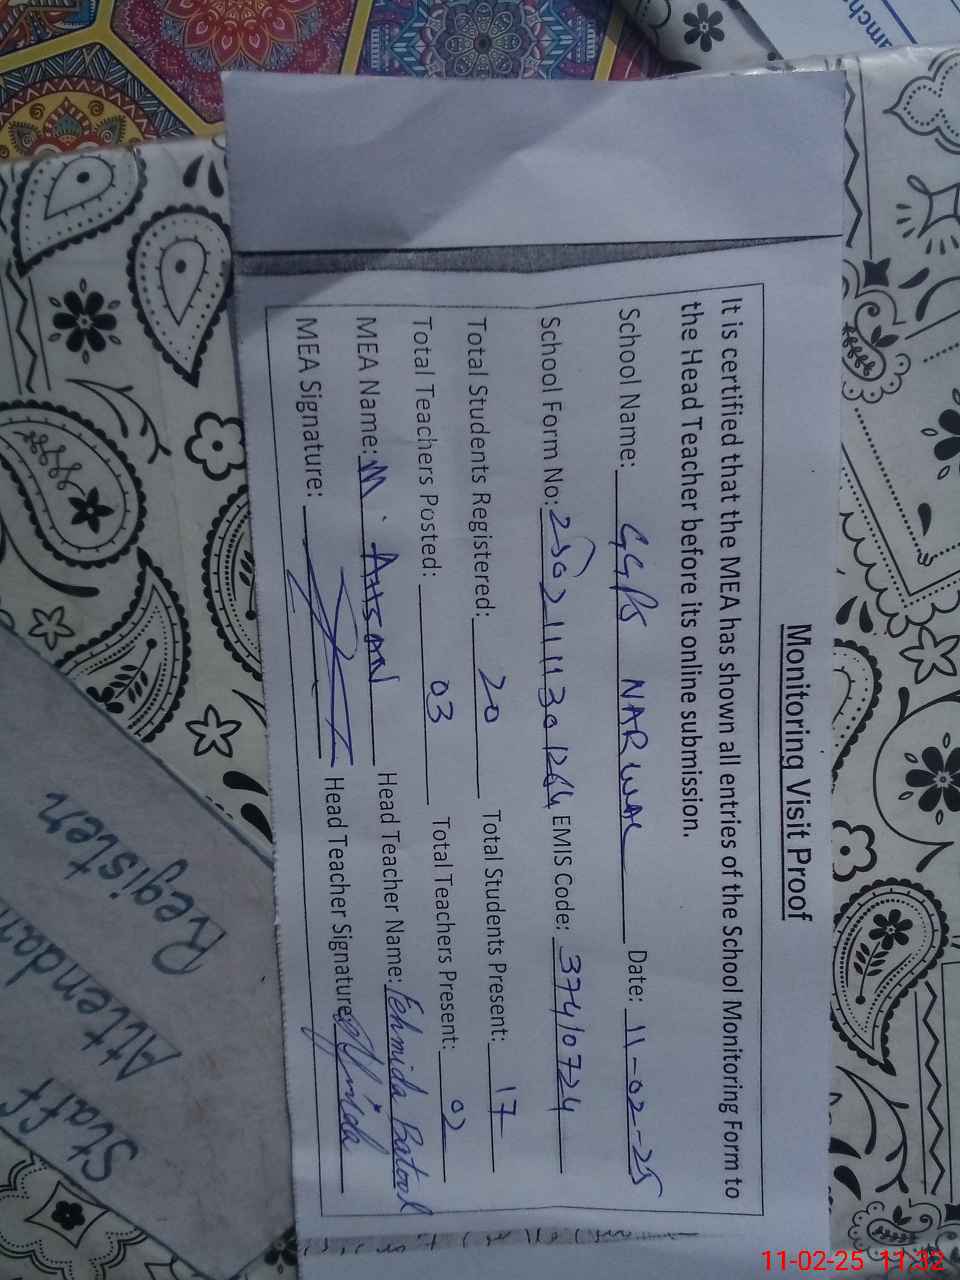 Monitoring Visit Proof
It is certified that the MEA has shown all entries of the School Monitoring Form to
the Head Teacher before its online submission.
School Name: GGPS NARWAL Date: 11-02-25
School Form No: EMIS Code: 37410724
Total Students Registered: 20 Total Students Present: 17
Total Teachers Posted: 03 Total Teachers Present: 02
MEA Name: M. AHSAN Head Teacher Name: Fehmida Batool
MEA Signature: Head Teacher Signature:
Staff
Attendan
Register
11-02-25 11:32